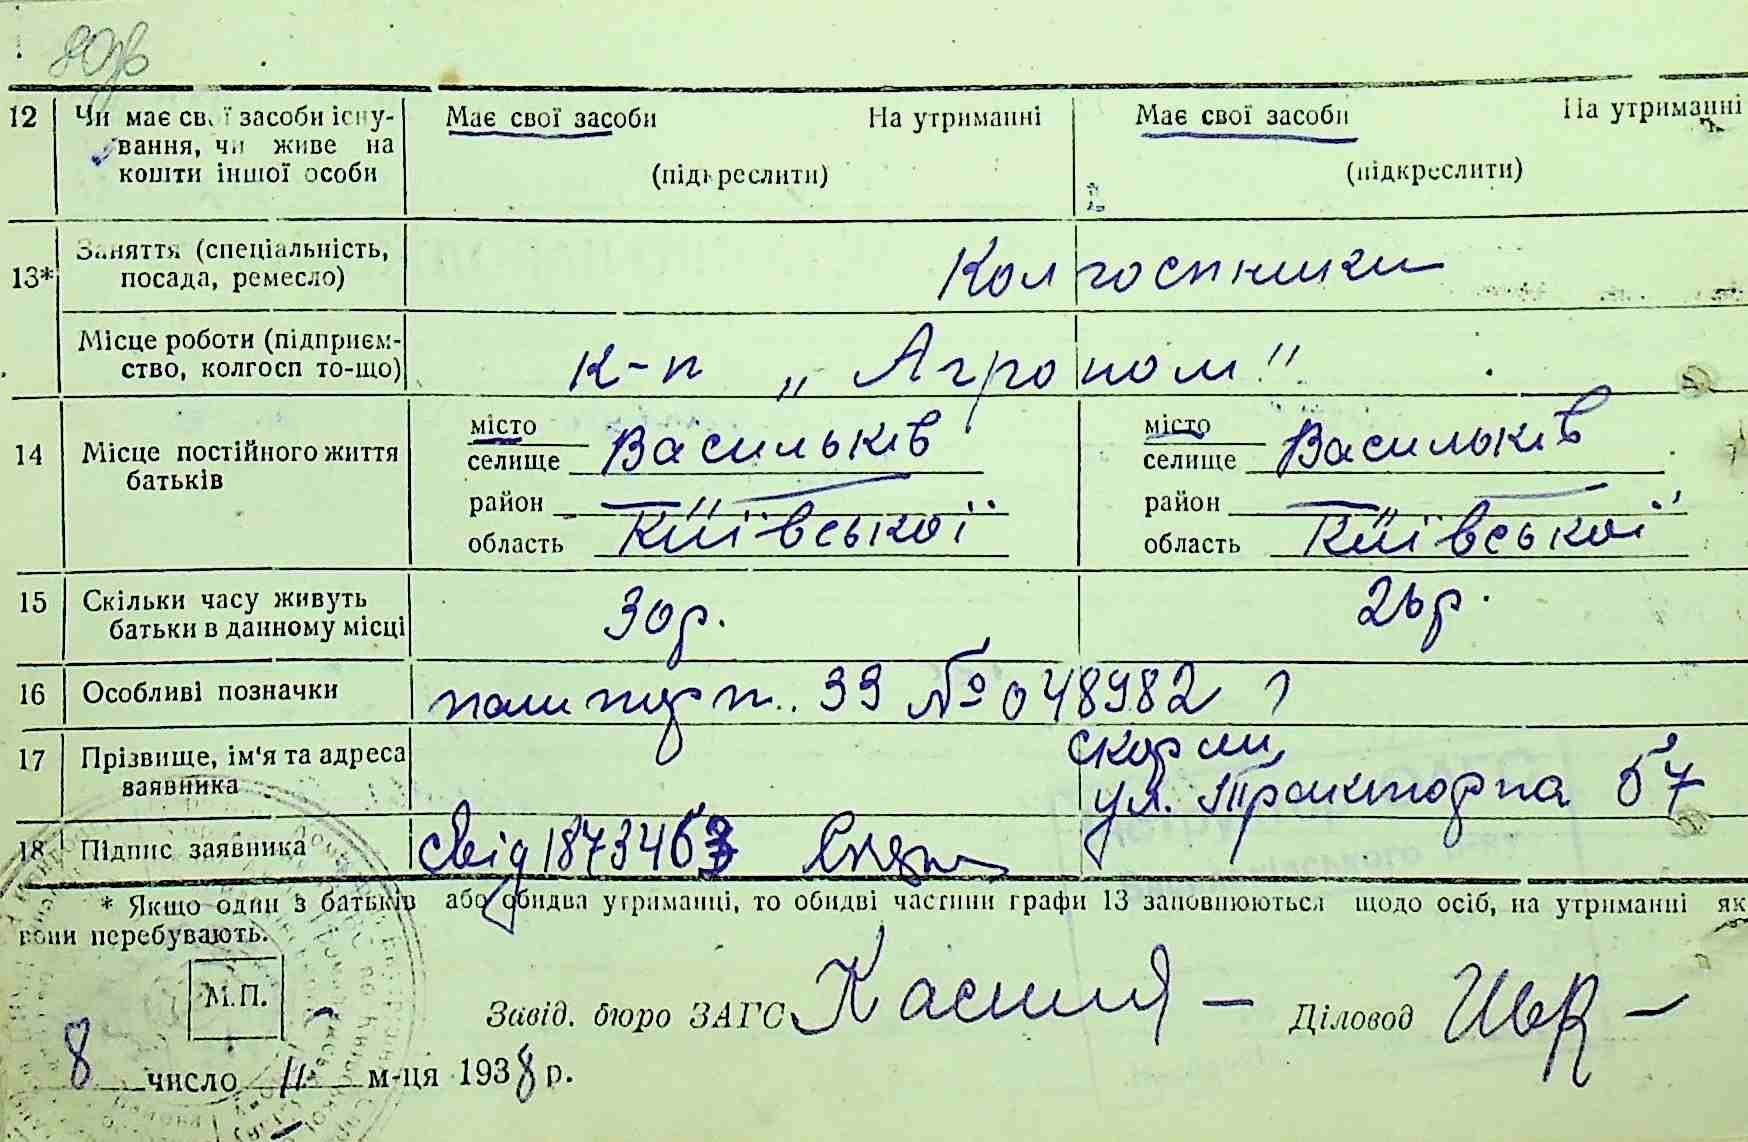 12 Чи має свої засоби існу- Має свої засоби На утриманні Має свої засоби На утриманні
вання, чи живе на
кошти іншої особи (підкреслити) (підкреслити)
13* Заняття (спеціальність,
посада, ремесло) Колгоспники
Місце роботи (підприєм-
ство, колгосп то-що) к-п „Агроном"
14 Місце постійного життя
батьків
місто
селище Васильків
район
область Київської
місто
селище Васильків
район
область Київської
15 Скільки часу живуть
батьки в данному місці 30 р. 26 р.
16 Особливі позначки 33 № 048982
17 Прізвище, ім'я та адреса
заявника
ул. Тракторна 57
18 Підпис заявника свід 187346
* Якщо один з батьків або обидва утриманці, то обидві частини графи 13 заповнюються щодо осіб, на утриманні як
вони перебувають.
М.П.
Завід. бюро ЗАГС Діловод
8 число 11 м-ця 1938 р.